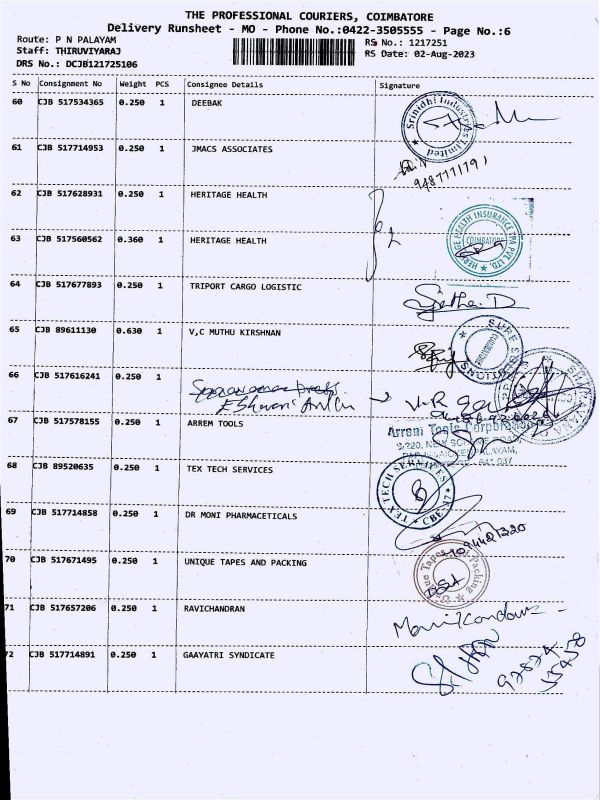 THE PROFESSIONAL COURIERS, COIMBATORE
Delivery Runsheet - MO - Phone No.:0422-3505555 - Page No.:6
Route: P N PALAYAM
RS No.: 1217251
Staff: THIRUVIYARAJ
RS Date: 02-Aug-2023
DRS No.: DCJB121725106
S No Consignment No Weight PCS Consignee Details Signature
60 CJB 517534365 0.250 1 DEEBAK
Srinidhi Industries Limited
61 CJB 517714953 0.250 1 JMACS ASSOCIATES
62 CJB 517628931 0.250 1 HERITAGE HEALTH
HERITAGE HEALTH INSURANCE TPA PVT. LTD.
COIMBATORE
63 CJB 517560562 0.360 1 HERITAGE HEALTH
64 CJB 517677893 0.250 1 TRIPORT CARGO LOGISTIC
65 CJB 89611130 0.630 1 V,C MUTHU KIRSHNAN
66 CJB 517616241 0.250 1
67 CJB 517578155 0.250 1 ARREM TOOLS
Arrem Tools Corporation
68 CJB 89520635 0.250 1 TEX TECH SERVICES
TEX TECH SERVICES
69 CJB 517714858 0.250 1 DR MONI PHARMACETICALS
70 CJB 517671495 0.250 1 UNIQUE TAPES AND PACKING
71 CJB 517657206 0.250 1 RAVICHANDRAN
Manikandan
72 CJB 517714891 0.250 1 GAAYATRI SYNDICATE